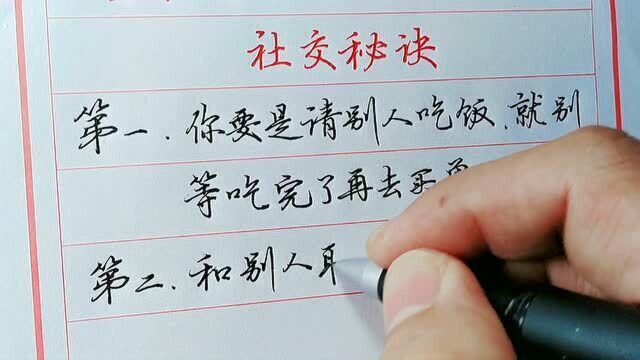 社交秘诀
第一.你要是请别人吃饭,就别
等吃完了再去买单
第二.和别人